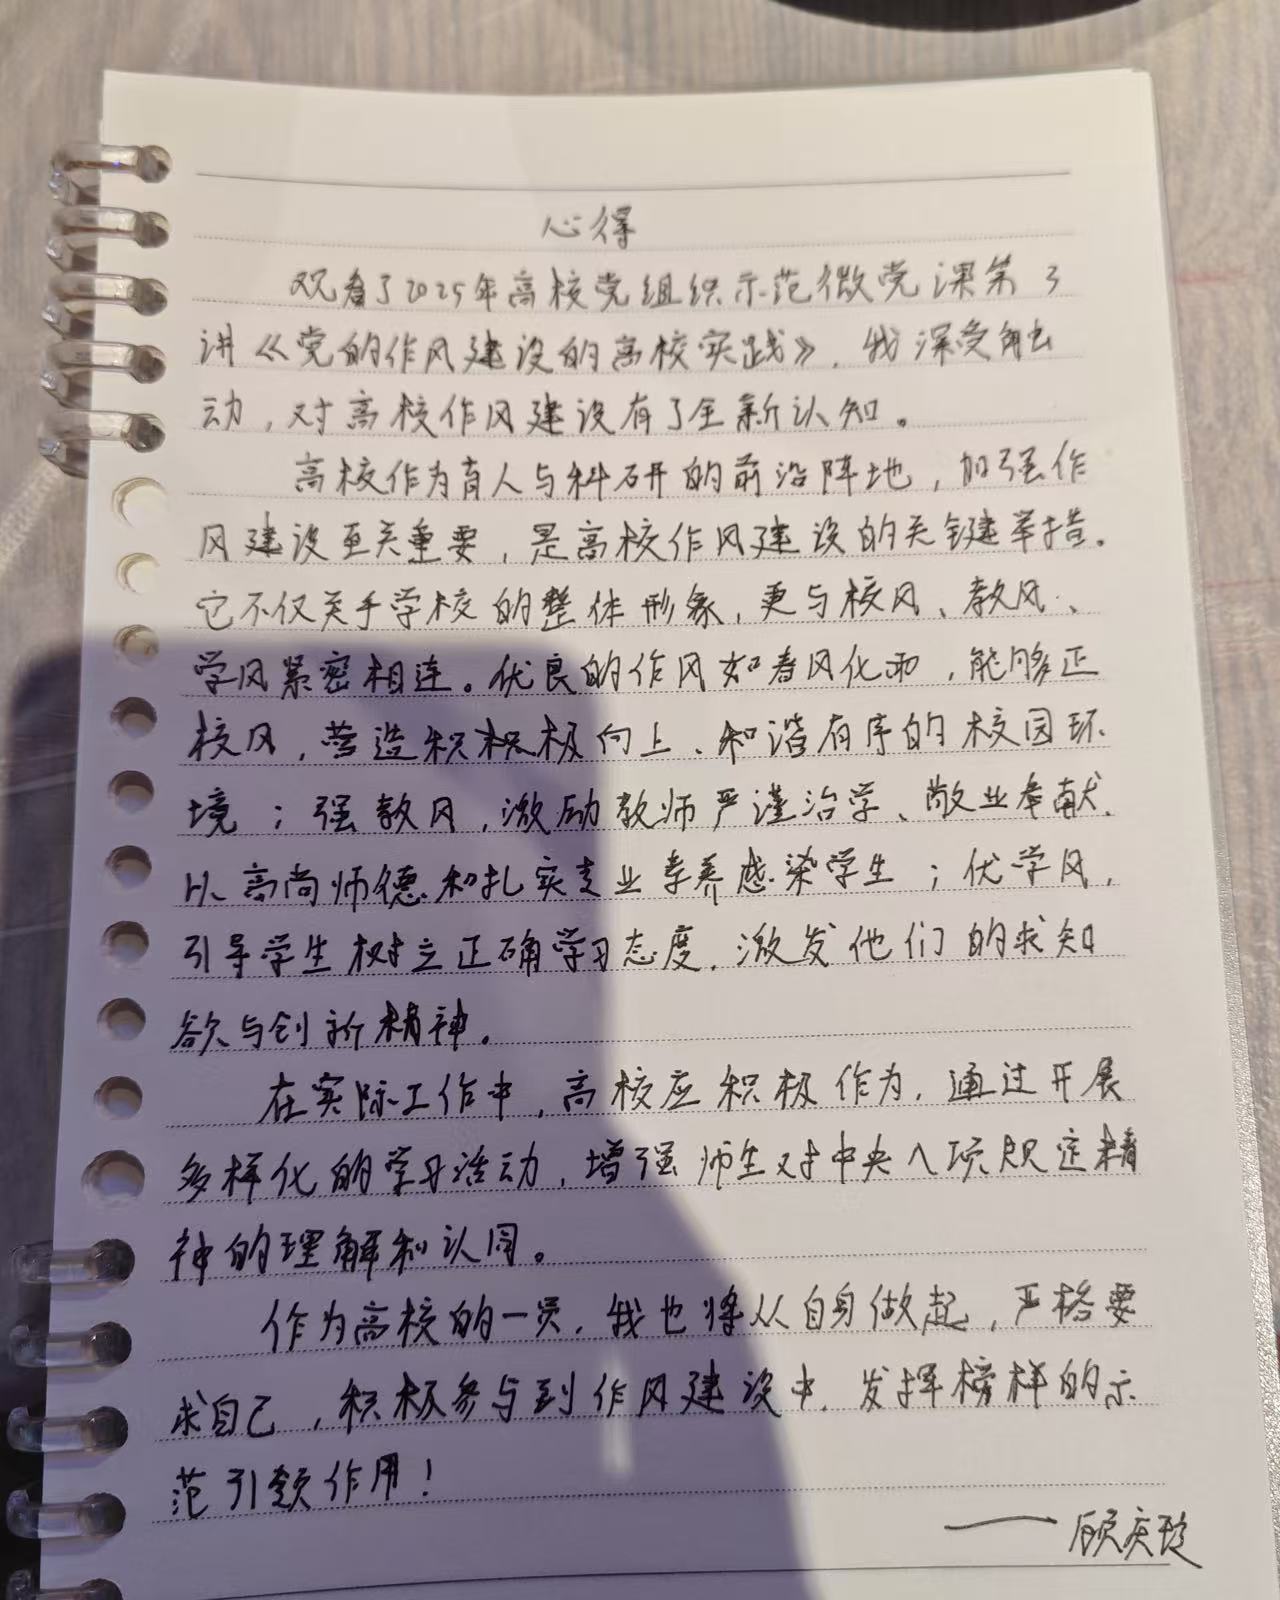 心得
观看了2025年高校党组织示范微党课第3
讲《党的作风建设的高校实践》，我深受触
动，对高校作风建设有了全新认知。
高校作为育人与科研的前沿阵地，加强作
风建设至关重要，是高校作风建设的关键举措。
它不仅关乎学校的整体形象，更与校风、教风、
学风紧密相连。优良的作风如春风化雨，能够正
校风，营造积积极向上、和谐有序的校园环
境；强教风，激励教师严谨治学、敬业奉献，
以高尚师德和扎实专业素养感染学生；优学风，
引导学生树立正确学习态度，激发他们的求知
欲与创新精神。
在实际工作中，高校应积极作为，通过开展
多样化的学习活动，增强师生对中央八项规定精
神的理解和认同。
作为高校的一员，我也将从自身做起，严格要
求自己，积极参与到作风建设中，发挥榜样的示
范引领作用！
——顾庆